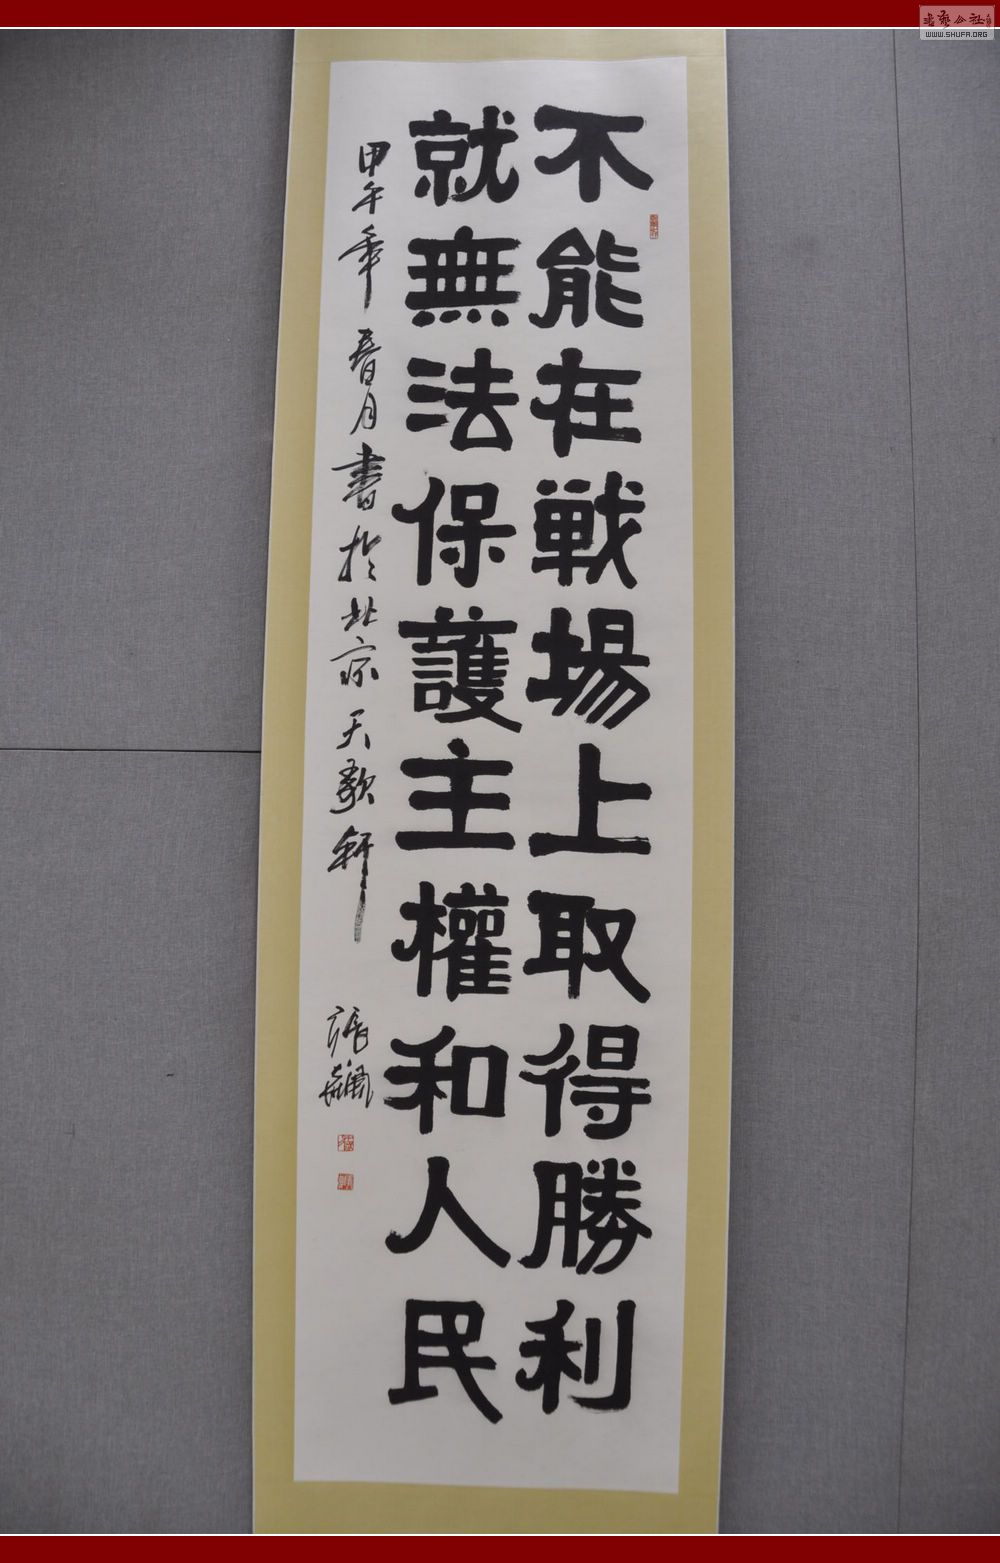 不能在戰場上取得勝利
就無法保護主權和人民
甲午年春月書於北京天歌軒
張
WWW.SHUFA.ORG